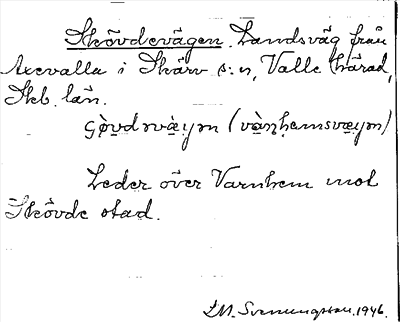 Skövdevägen. Landsväg från
Axevalla i Skärv s:n, Valle härad,
Skb. län.
(vànhemsvæyın)
Leder över Varnhem mot
Skövde stad.
L.M. Svenungsson. 1946.